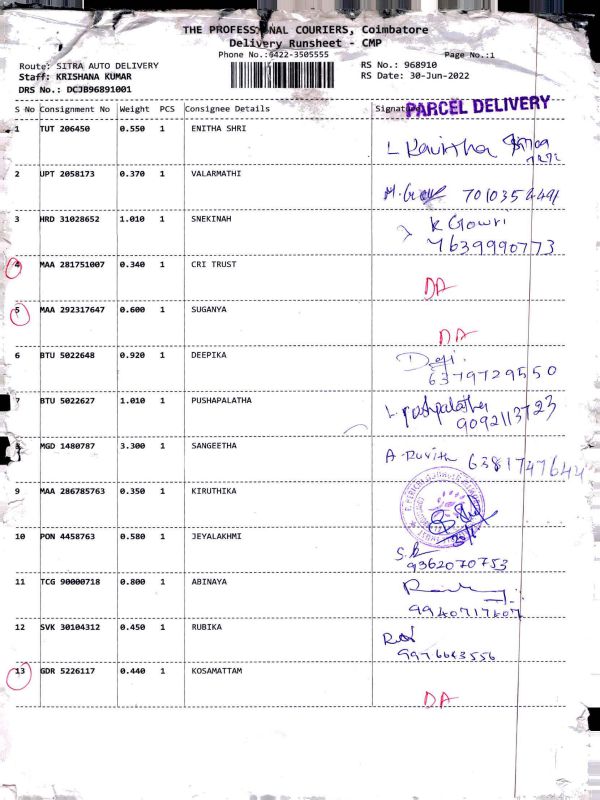 THE PROFESSIONAL COURIERS, Coimbatore
Delivery Runsheet - CMP
Phone No.:0422-3505555
Page No.:1
Route: SITRA AUTO DELIVERY
RS No.: 968910
Staff: KRISHANA KUMAR
RS Date: 30-Jun-2022
DRS No.: DCJB96891001
S No Consignment No Weight PCS Consignee Details Signature
PARCEL DELIVERY
1 TUT 206450 0.550 1 ENITHA SHRI
L Kavitha
2 UPT 2058173 0.370 1 VALARMATHI
3 HRD 31028652 1.010 1 SNEKINAH
K Gowri
7639990773
4 MAA 281751007 0.340 1 CRI TRUST
DA
5 MAA 292317647 0.600 1 SUGANYA
DA
6 BTU 5022648 0.920 1 DEEPIKA
6379729550
7 BTU 5022627 1.010 1 PUSHAPALATHA
L. pushpalatha
9092113723
MGD 1480787 3.300 1 SANGEETHA
9 MAA 286785763 0.350 1 KIRUTHIKA
10 PON 4458763 0.580 1 JEYALAKHMI
9362070753
11 TCG 90000718 0.800 1 ABINAYA
9940717607
12 SVK 30104312 0.450 1 RUBIKA
9976643556
13 GDR 5226117 0.440 1 KOSAMATTAM
DA